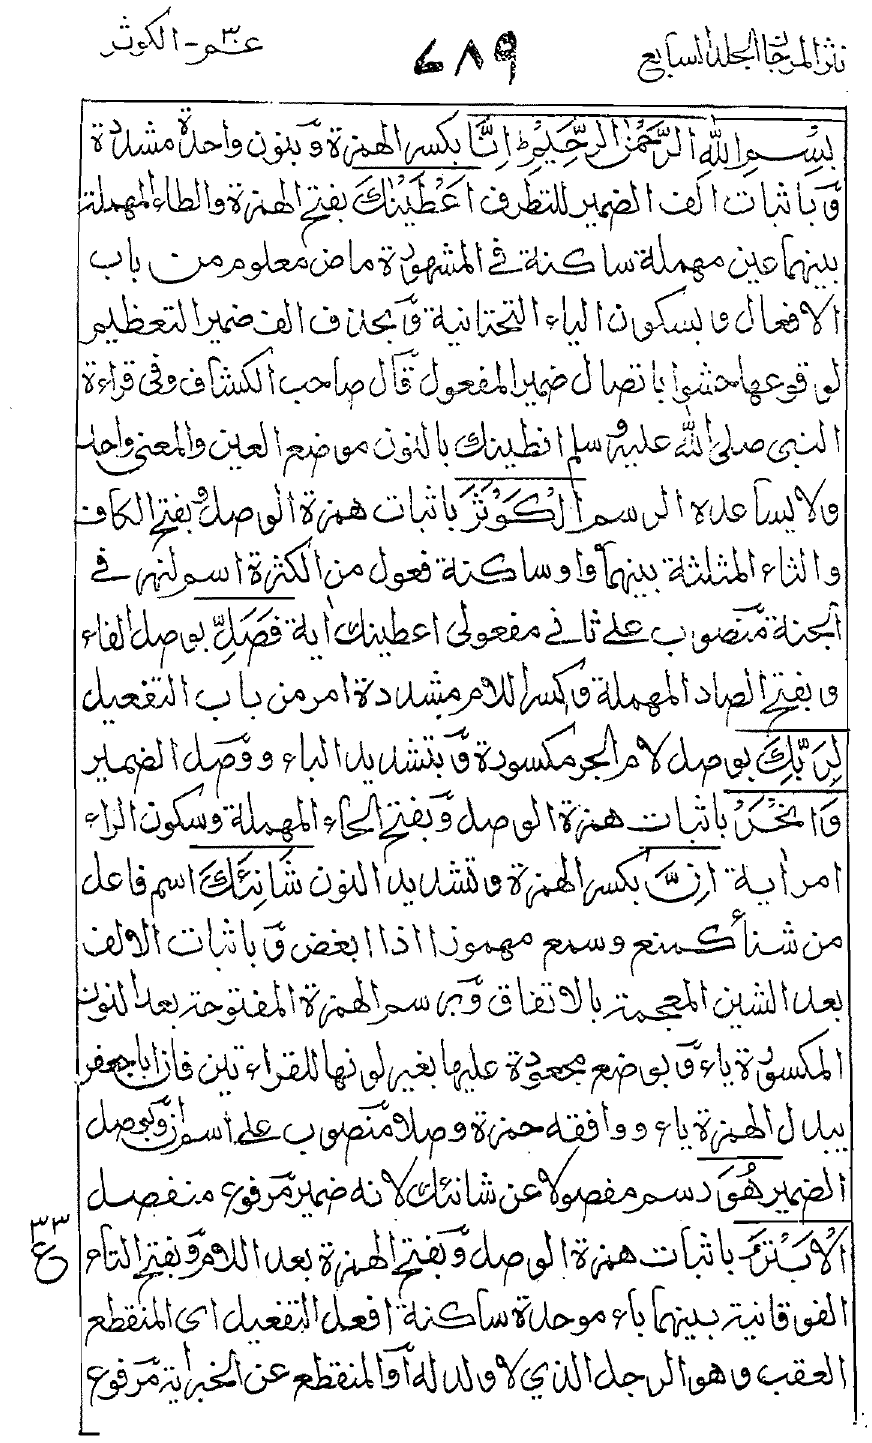 نثر المرجان الجلد السابع ٦٨٩ عم ٣٠ - الكوثر
بِسْمِ اللهِ الرَّحْمٰنِ الرَّحِيْمِ اِنَّا بكسر الهمزة وبنون واحدة مشددة
وباثبات الف الضمير للتطرف اَعْطَيْنٰكَ بفتح الهمزة والطاء المهملة
بينهما عين مهملة ساكنة في المشهورة ماض معلوم من باب
الافعال وبسكون الياء التحتانية وبحذف الف ضمير التعظيم
لوقوعها حشوا باتصال ضمير المفعول قال صاحب الكشاف وفى قراءة
النبي صلى الله عليه وسلم انطينك بالنون موضع العين والمعنى واحد
ولا يساعده الرسم الْكَوْثَرَ باثبات همزة الوصل وبفتح الكاف
والثاء المثلثة بينهما واو ساكنة فعول من الكثرة اسم لنهر في
الجنة منصوب على ثاني مفعولى اعطينك اية فَصَلِّ بوصل الفاء
وبفتح الصاد المهملة وكسر اللام مشددة امر من باب التفعيل
لِرَبِّكَ بوصل لام الجر مكسورة وبتشديد الباء ووصل الضمير
وَانْحَرْ باثبات همزة الوصل وبفتح الحاء المهملة وسكون الراء
امر اية اِنَّ بكسر الهمزة وتشديد النون شَانِئَكَ اسم فاعل
من شنأ كمنع وسمع مهموزا اذا ابغض وباثبات الالف
بعد الشين المعجمة بالاتفاق وبرسم الهمزة المفتوحة بعد النون
المكسورة ياء وبوضع مجعودة عليها بغير لونها للقراءتين فان اباجعفر
يبدل الهمزة ياء ووافقه حمزة وصلا منصوب على اسم ان وبوصل
الضمير هُوَ رسم مفصولا عن شانئك لانه ضمير مرفوع منفصل
الْاَبْتَرُ باثبات همزة الوصل وبفتح الهمزة بعد اللام وبفتح التاء
٣٣ ع
الفوقانية بينهما باء موحدة ساكنة افعل التفعيل اى المنقطع
العقب وهو الرجل الذي لا ولد له او المنقطع عن الخير اية مرفوع